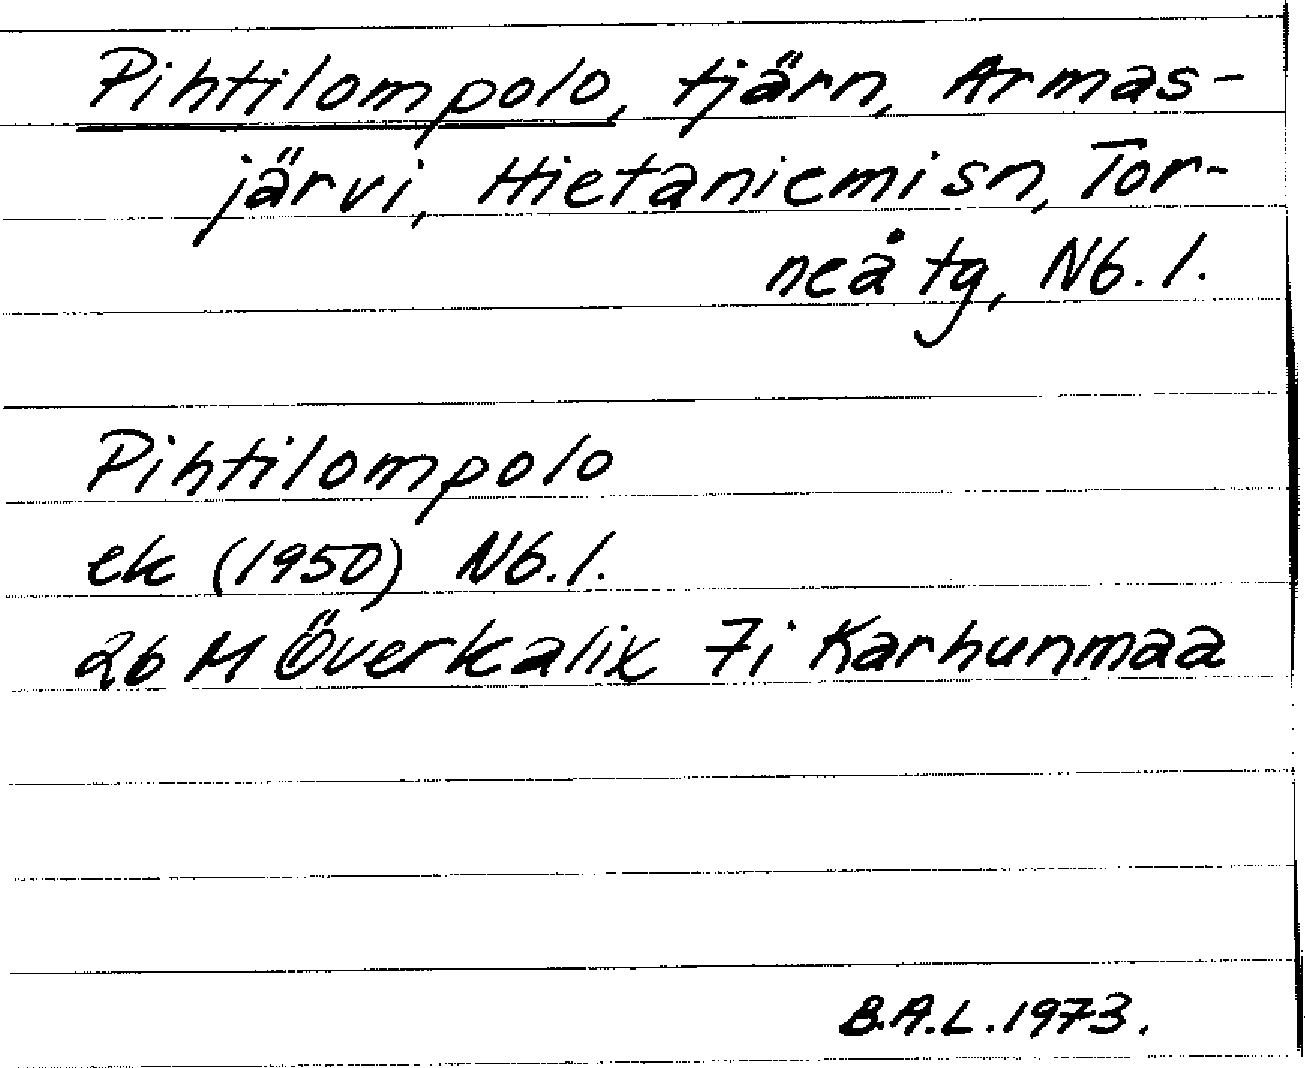 Pihtilompolo, tjärn, Armas-
järvi, Hietaniemi sn, Tor-
neå tg, Nb. l.
Pihtilompolo
ek (1950) Nb. l.
26 M Överkalix 7i Karhunmaa
B.A.L. 1973.